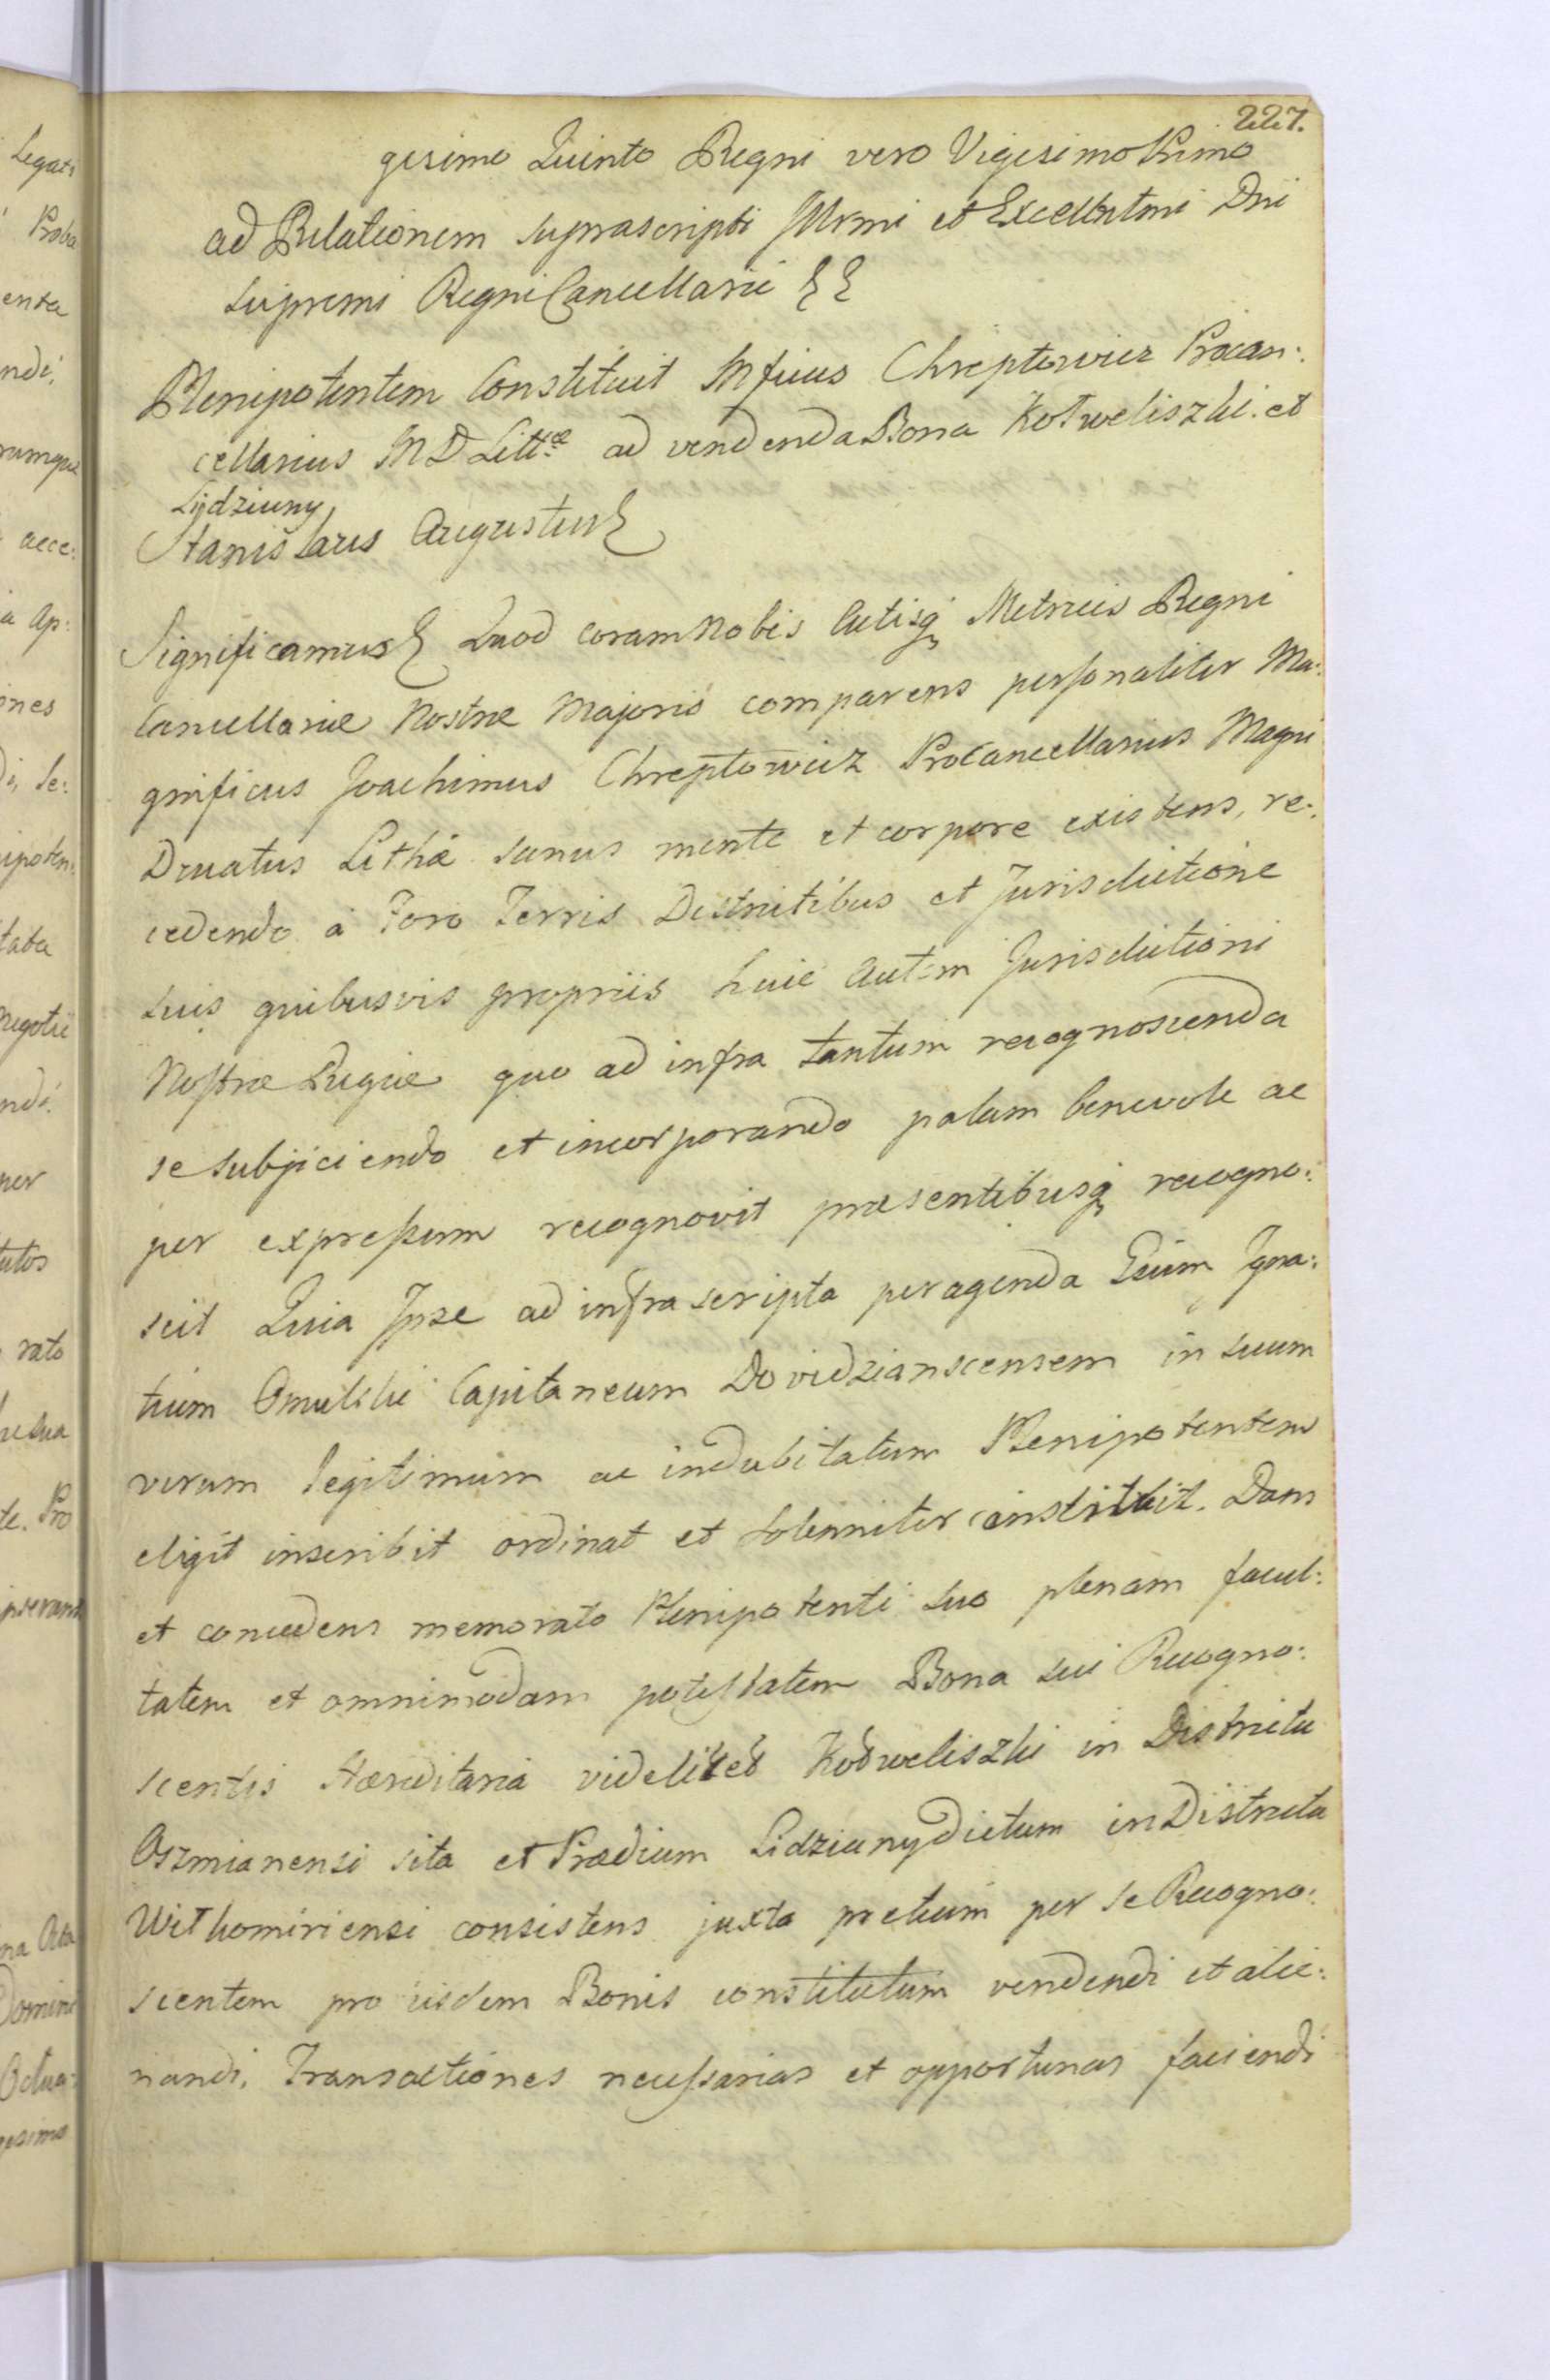 227.
gesimo Quinto Regni vero Vigesimo Primo
ad Relationem suprascripti Illrmi et Excellntmi Dni
Supremi Regni Cancellarii
Plenipotentem Constituit Mficus Chreptowicz Procan:
cellarius M D Littæ ad vendenda Bona Kotweliszki et
Lydziuny
Stanislaus Augustus
Significamus Quod coram Nobis Actisq Metricis Regni
Cancellariæ Nostræ Majoris comparens personaliter Ma:
gnificus Joachimus Chreptowicz Procancellarius Magni
Ducatus Lithæ sanus mente et corpore existens, re:
cedendo à Foro Terris Districtibus et Jurisdictione
suis quibusvis propriis huic autem Jurisdictioni
Nostræ Regiæ quo ad infra tantum recognoscenda
se subjiciendo et incorporando palam benevole ac
per expressum recognovit præsentibusq recogno:
scit Quia Ipse ad infrascripta peragenda Gsum Igna:
tium Omulski Capitaneum Dovidzianscensem in suum
verum legitimum ac indubitatum Plenipotentem
eligit inscribit ordinat et solenniter constituit. Dans
et concedens memorato Plenipotenti suo plenam facul:
tatem et omnimodam potestatem Bona sui Recogno:
scentis Hæreditaria videlicet Kotweliszki in Districtu
Oszmianensi sita et Prædium Lidziuny dictum in Districtu
Wilkomiriensi consistens juxta pretium per se Recogno:
scentem pro iisdem Bonis constitutum vendendi et alie:
nandi, Transactiones necessarias et opportunas faciendi